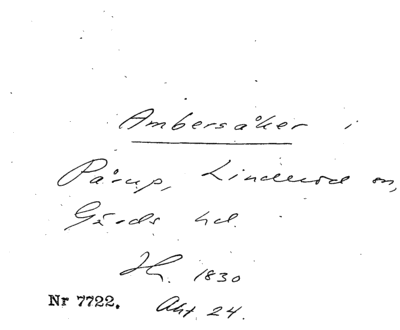 Ambersåker i
Pårup, Linderöd sn,
Gärds hd.
JH. 1830
Nr 7722. Akt 24.